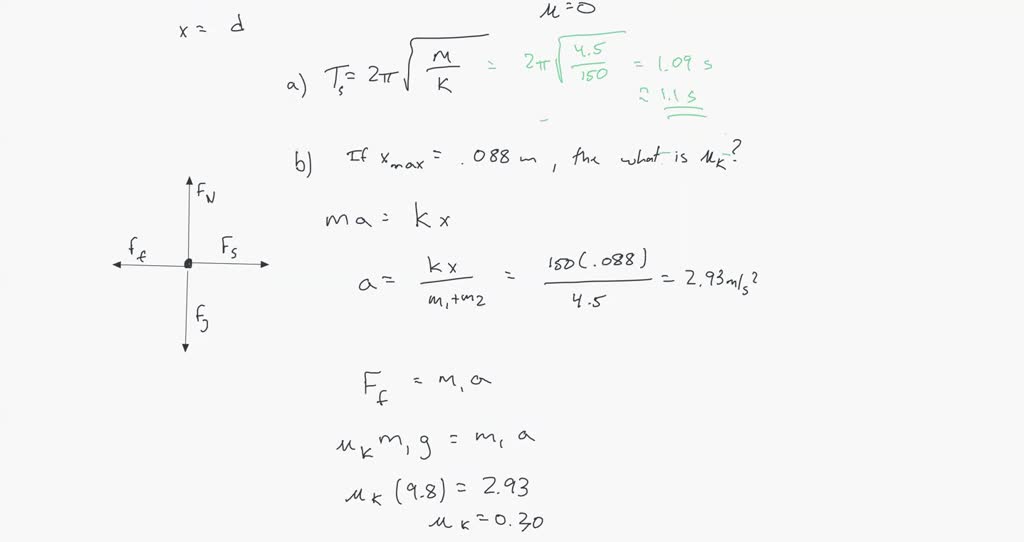 μ=0
x = d
a) Tₛ = 2π√(m/K) = 2π√(4.5/150) = 1.09 s
≈ 1.1 s
b) If xmax = .088 m, the what is μK?
FN
ff Fs
Fg
ma = kx
a = kx/(m₁+m₂) = 150(.088)/4.5 = 2.93 m/s²
Ff = m₁a
μK m₁g = m₁a
μK (9.8) = 2.93
μK = 0.30